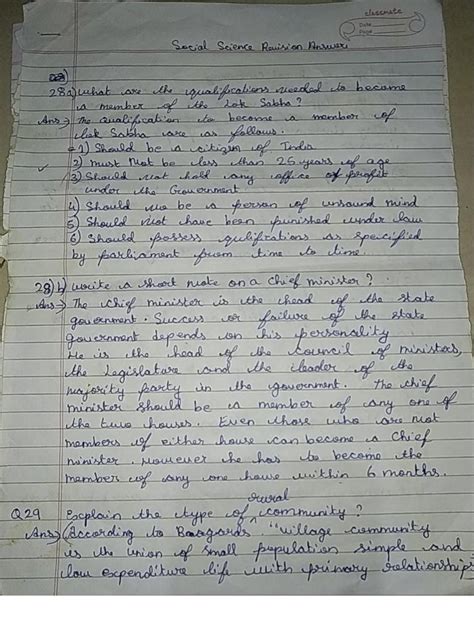 classmate
Date
Page
Social Science Revision Answer
28 a) What are the qualifications needed to become
a member of the Lok Sabha?
Ans → The qualification to become a member of
Lok Sabha are as follows.
1) Should be a citizen of India
2) Must Not be less than 25 years of age
3) Should Not hold any office of profit
under the Government
4) Should no be a person of unsound mind
5) Should not have been punished under law
6) Should possess qulifications as specified
by parliament from time to time.
28) b) Write a short note on a Chief minister?
Ans → The chief minister is the head of the state
government. Success or failure of the state
government depends on his personality
He is the head of the council of ministers,
the Legislature and the leader of the
majority party in the government. The chief
minister should be a member of any one of
the two houses. Even those who are not
members of either house can become a Chief
minister. However he has to become the
member of any one house within 6 months.
Q29 Explain the type of rural community?
Ans) According to "village community
is the union of small population simple and
low expenditure life with primary relationships